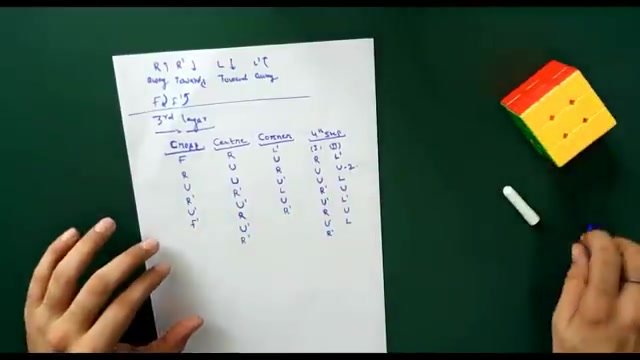 R↑ R' ↓ L ↓ L'↑
Away Towards Toward Away
3rd layer
Cross Centre Corner 4th step
(I) (II)
F R L' R L'
R U R U U-2
U U U' U L
R' R' L R' U
U' U' U U' L'
F' R R' R U
U' U' L
R' R'